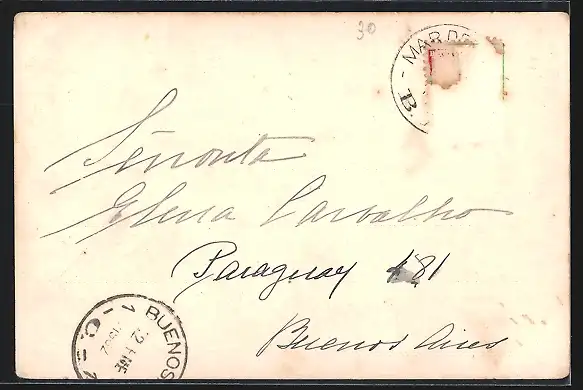 30
MAR DE
B.
Señorita
Elena Carvalho
Paraguay 481
Buenos Aires
BUENOS
12 ENE
1902